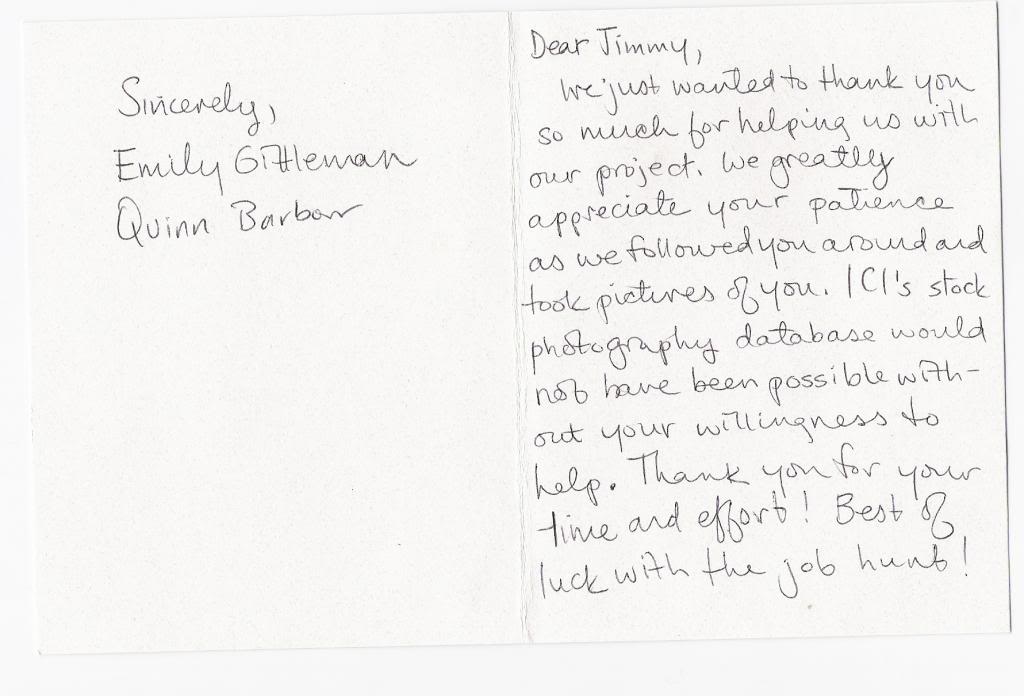 Dear Jimmy,
We just wanted to thank you
so much for helping us with
our project. We greatly
appreciate your patience
as we followed you around and
took pictures of you. ICI's stock
photography database would
not have been possible with-
out your willingness to
help. Thank you for your
time and effort! Best of
luck with the job hunt!
Sincerely,
Emily Gittleman
Quinn Barbour